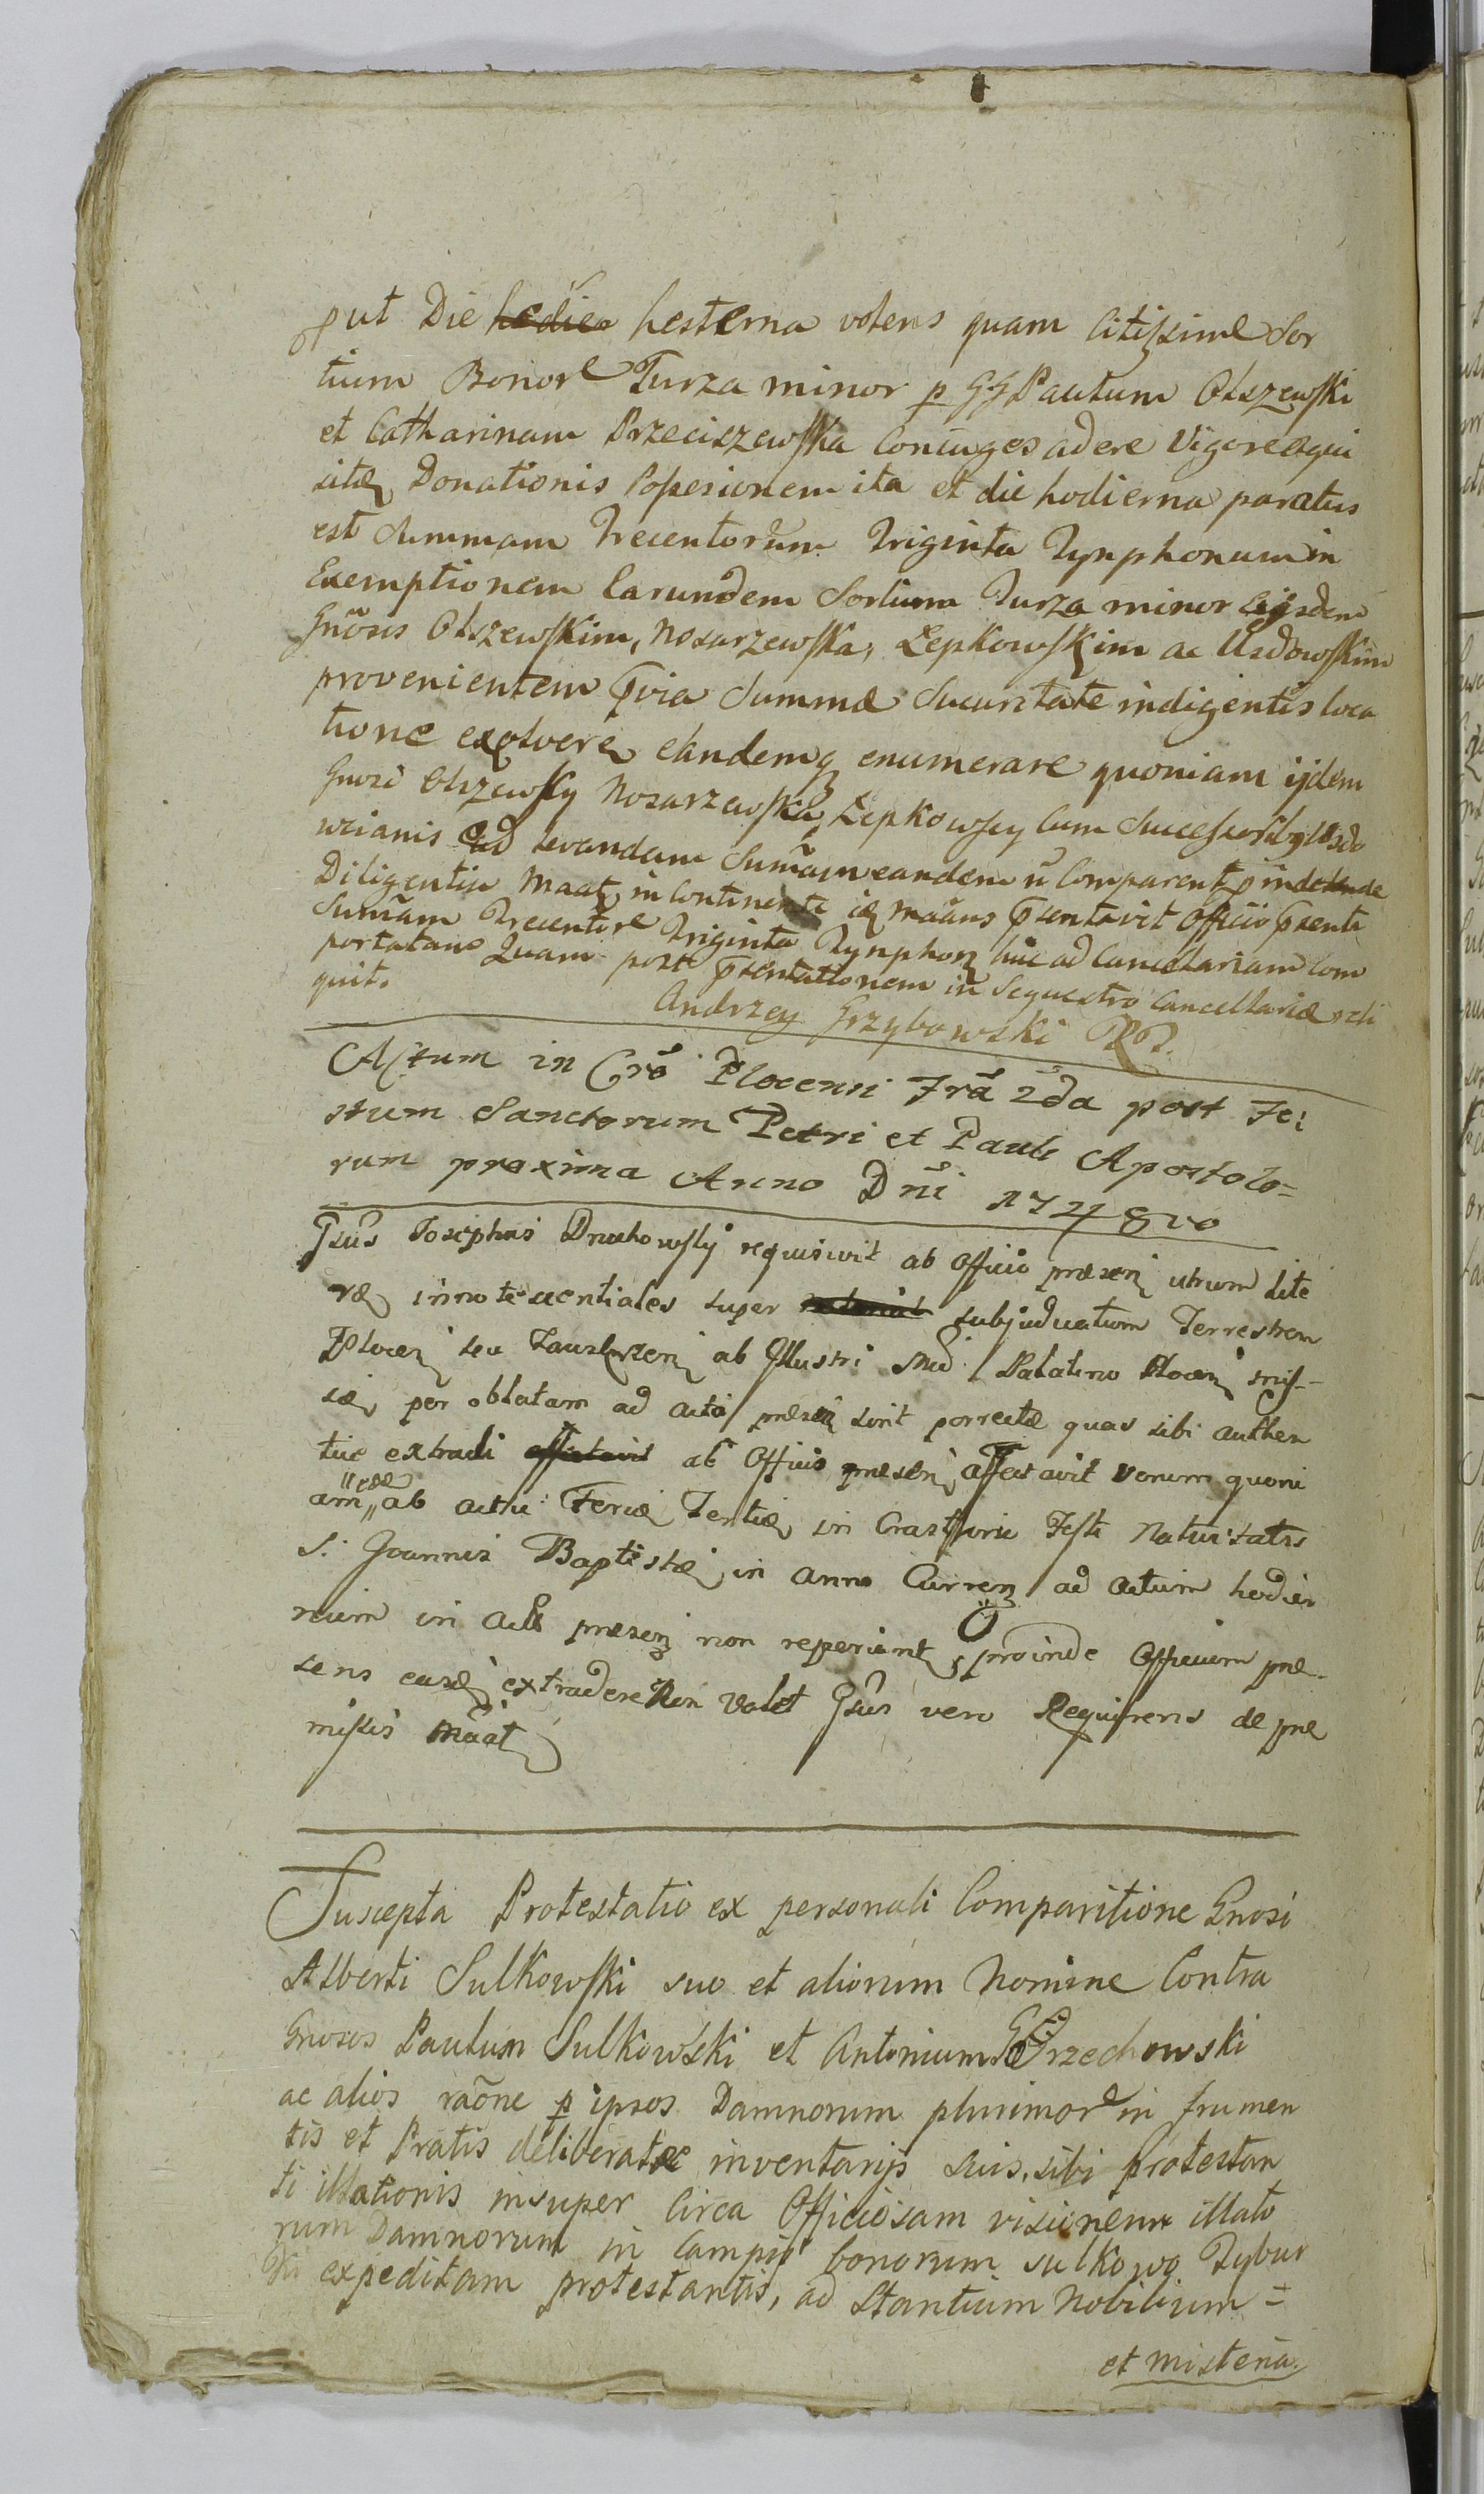 put Die hodier hesterna volens quam Citissime Sor
tium Bonor Turza minor p GG Paulum Olszewski
et Catharinam Przeciszewska Coniuges adere Vigore
sitæ Donationis Possesionem ita et die hodierna paratus
est Summam Trecentorum Triginta Tynphonum in
Exemptionem Earundem Sortium Turza minor Eijsdem
Gnosis Olszewskim, Nosarzewska, Lepkowskim ac Usdowskim
provenientem pvia Summæ Securitate indigentis loca
tione exolvere eandemq enumerare quoniam ijdem
Gnosi Olszewscy Nosarzewska, Lepkowscy Cum Successoribq Usdo
wianis ad levandam Sumam eandem n Comparent p inde
Diligentia Maat in Continenti is Manus psentavit Officio psenti
Sumam Trecentor Triginta Tynphon huc ad Cancellariam Com
portatam Quam post psentationem in Sequestro Cancellariæ reli
quit.
Andrzey Grzybowski
Actum in Cro Plocensi Fra 2da post Fe:
stum Sanctorum Petri et Pauli Apostolo=
rum proxima Anno Dni 1748vo
Gsus Josephus Druchowsky requisivit ab Officio præsen utrum Lite
ræ innotescentiales super subjudicatum Terrestrem
Plocen seu Zawskrzen ab Illustri Mcd Palatino Plocen mis-
sæ per oblatam ad acta præsen sint porrectæ quas sibi authen
tice extradi ab Officio præsen affectavit verum quoni
am eæ ab actu Feriæ Tertiæ in Crastino Festi Nativitatis
S. Joannis Baptistæ in anno Curren ad actum hodier
num in actis præsen non reperiunt, proinde Officium præ-
sens easd extradere Non Valet Gsus vero Requirens de præ
missis Maat
Suscepta Protestatio ex personali Comparitione Gnosi
Alberti Sulkowski suo et aliorum Nomine Contra
Gnosos Paulum Sulkowski et Antonium Grzechowski
ac alios raone p ipsos Damnorum plurimor in frumen
tis et Pratis deliberate inventarijs suis, sibi Protestan
ti illationis insuper Circa Officiosam visionem illato
rum Damnorum in Campis bonorum Sulkowo Tybur
expeditam protestantis, ad Stantium Nobilium =
et mistena.